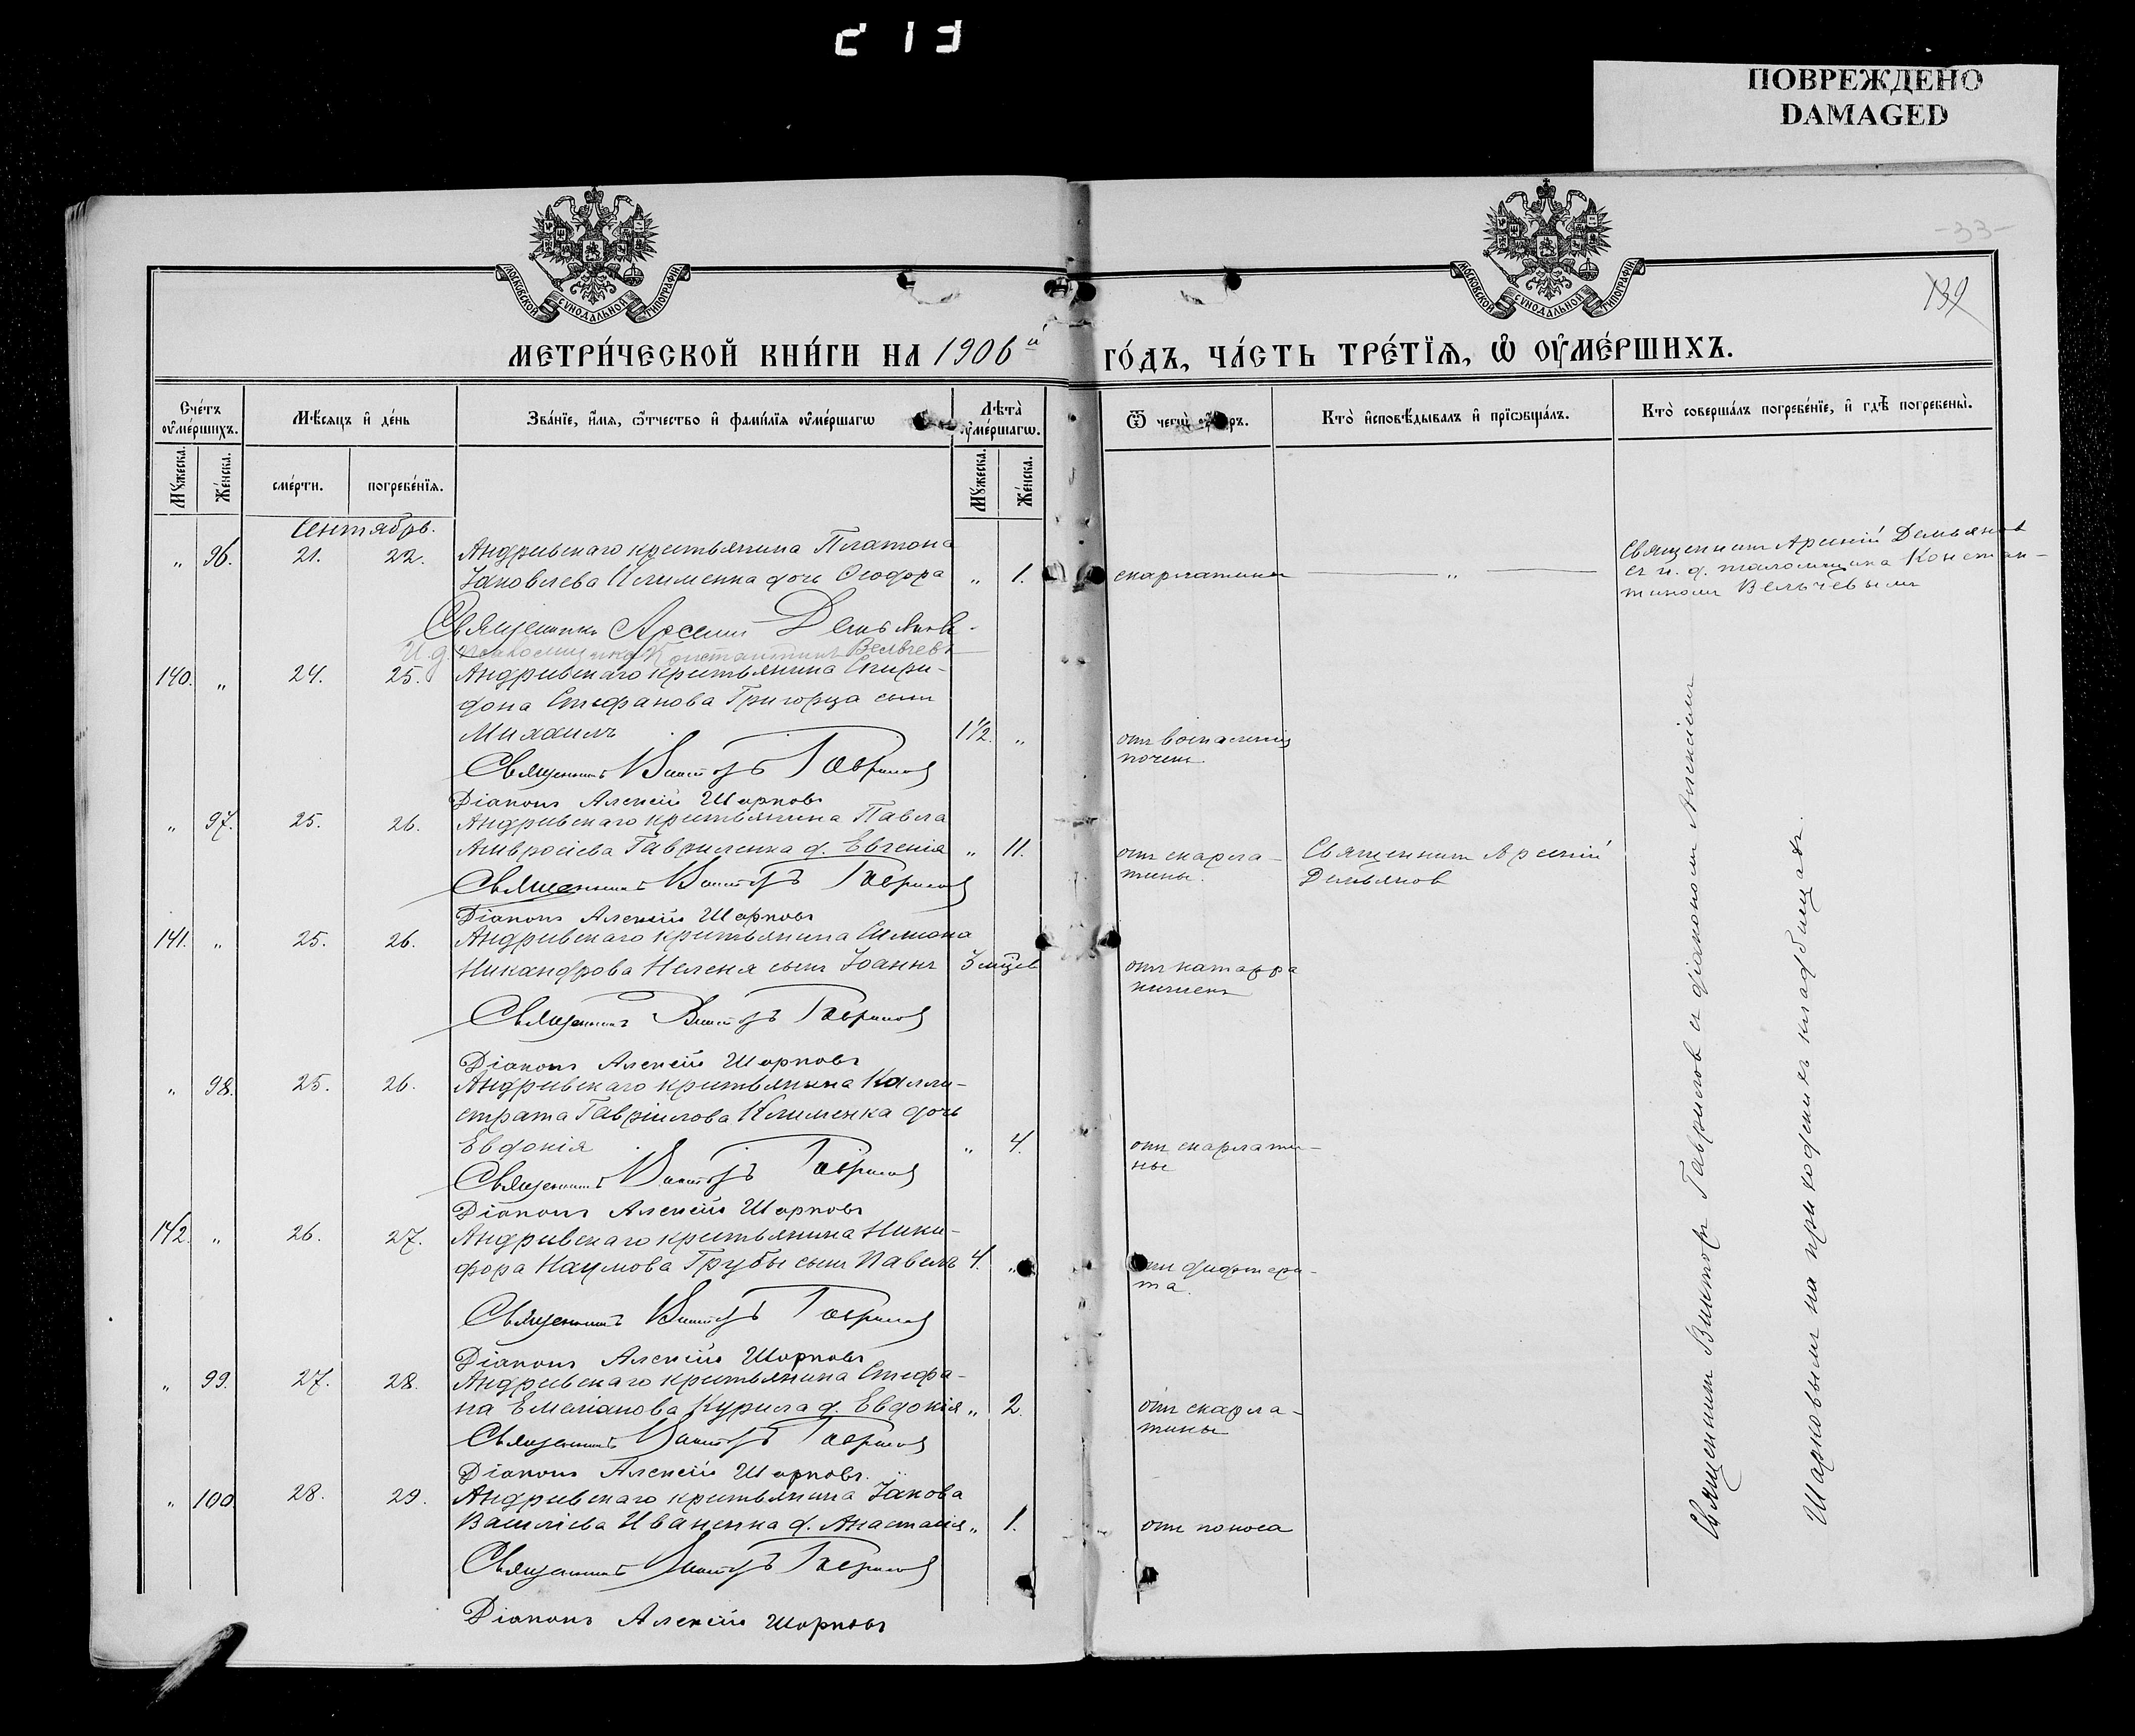 ПОВРЕЖДЕНО
DAMAGED
-33-
139
МОСКОВСКОЙ СѴНОДАЛЬНОЙ ТИПОГРАФІИ
МОСКОВСКОЙ СѴНОДАЛЬНОЙ ТИПОГРАФІИ
МЕТРИ́ЧЕСКОЙ КНИ́ГИ НА 1906й ГО́ДЪ, ЧА́СТЬ ТРЕ́ТЇѦ, Ѡ ОУМЕ́РШИХЪ.
Сче́тъ оумершихъ.
Мѣ́сѧцъ и де́нь
Зва́нїе, и́мѧ, ѻ҆́тчество и фами́лїѧ оуме́ршагѡ
Лѣта̀ оуме́ршагѡ.
Ѿ чегѡ̀
Кто̀ и҆сповѣ́дывалъ и прїѡбща́лъ.
Кто̀ соверша́лъ погребе́нїе, и гдѣ̀ погребены̀.
Мꙋжеска.
Же́нска.
сме́рти.
погребе́нїѧ.
Мꙋжеска.
Же́нска.
Сентябрь.
" 96. 21. 22. Андреевскаго крестьянина Платона
Іаковлева Клименка дочь Ѳеодора " 1. скарлатины "
Священникъ Арсеній Демьянов
съ и. д. псаломщика Констан-
тиномъ Вельчевымъ
Священникъ Арсеній Демьянов
И. д. псаломщика Константинъ Вельчевъ
140. " 24. 25. Андреевскаго крестьянина Спири-
дона Стефанова Григорца сынъ
Михаилъ 1 1/2. " отъ воспаленія
почекъ.
Священникъ Викторъ Гаврилов
Діаконъ Алексій Шарковъ
" 97. 25. 26. Андреевскаго крестьянина Павла
Амвросіева Гавриленка д. Евгенія " 11. отъ скарла- Священникъ Арсеній
тины. Демьянов
Священникъ Викторъ Гаврилов
Діаконъ Алексій Шарковъ
141. " 25. 26. Андреевскаго крестьянина Симеона
Никандрова сынъ Іоаннъ 3 мѣсяц отъ катарра
кишекъ
Священникъ Викторъ Гаврилов
Діаконъ Алексій Шарковъ
" 98. 25. 26. Андреевскаго крестьянина Калли-
страта Гавріилова Клименка дочь
Евдокія " 4. отъ скарлати-
ны
Священникъ Викторъ Гаврилов
Діаконъ Алексій Шарковъ
142. " 26. 27. Андреевскаго крестьянина Ники-
фора Наумова Грубы сынъ Павелъ 4. " отъ дифтери-
та.
Священникъ Викторъ Гаврилов
Діаконъ Алексій Шарковъ
" 99. 27. 28. Андреевскаго крестьянина Стефа-
на Емеліанова Курила д. Евдокія " 2. отъ скарла-
тины
Священникъ Викторъ Гаврилов
Діаконъ Алексій Шарковъ.
" 100 28. 29. Андреевскаго крестьянина Іакова
Василіева Иваненка д. Анастасія " 1. отъ поноса
Священникъ Викторъ Гаврилов
Діаконъ Алексій Шарковъ
Священникъ Викторъ Гаврилов съ діакономъ Алексіемъ
Шарковымъ на приходскихъ кладбищахъ.